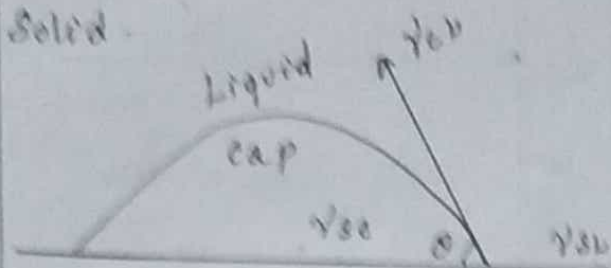 Solid
Liquid
cap
γse
θ
γsv